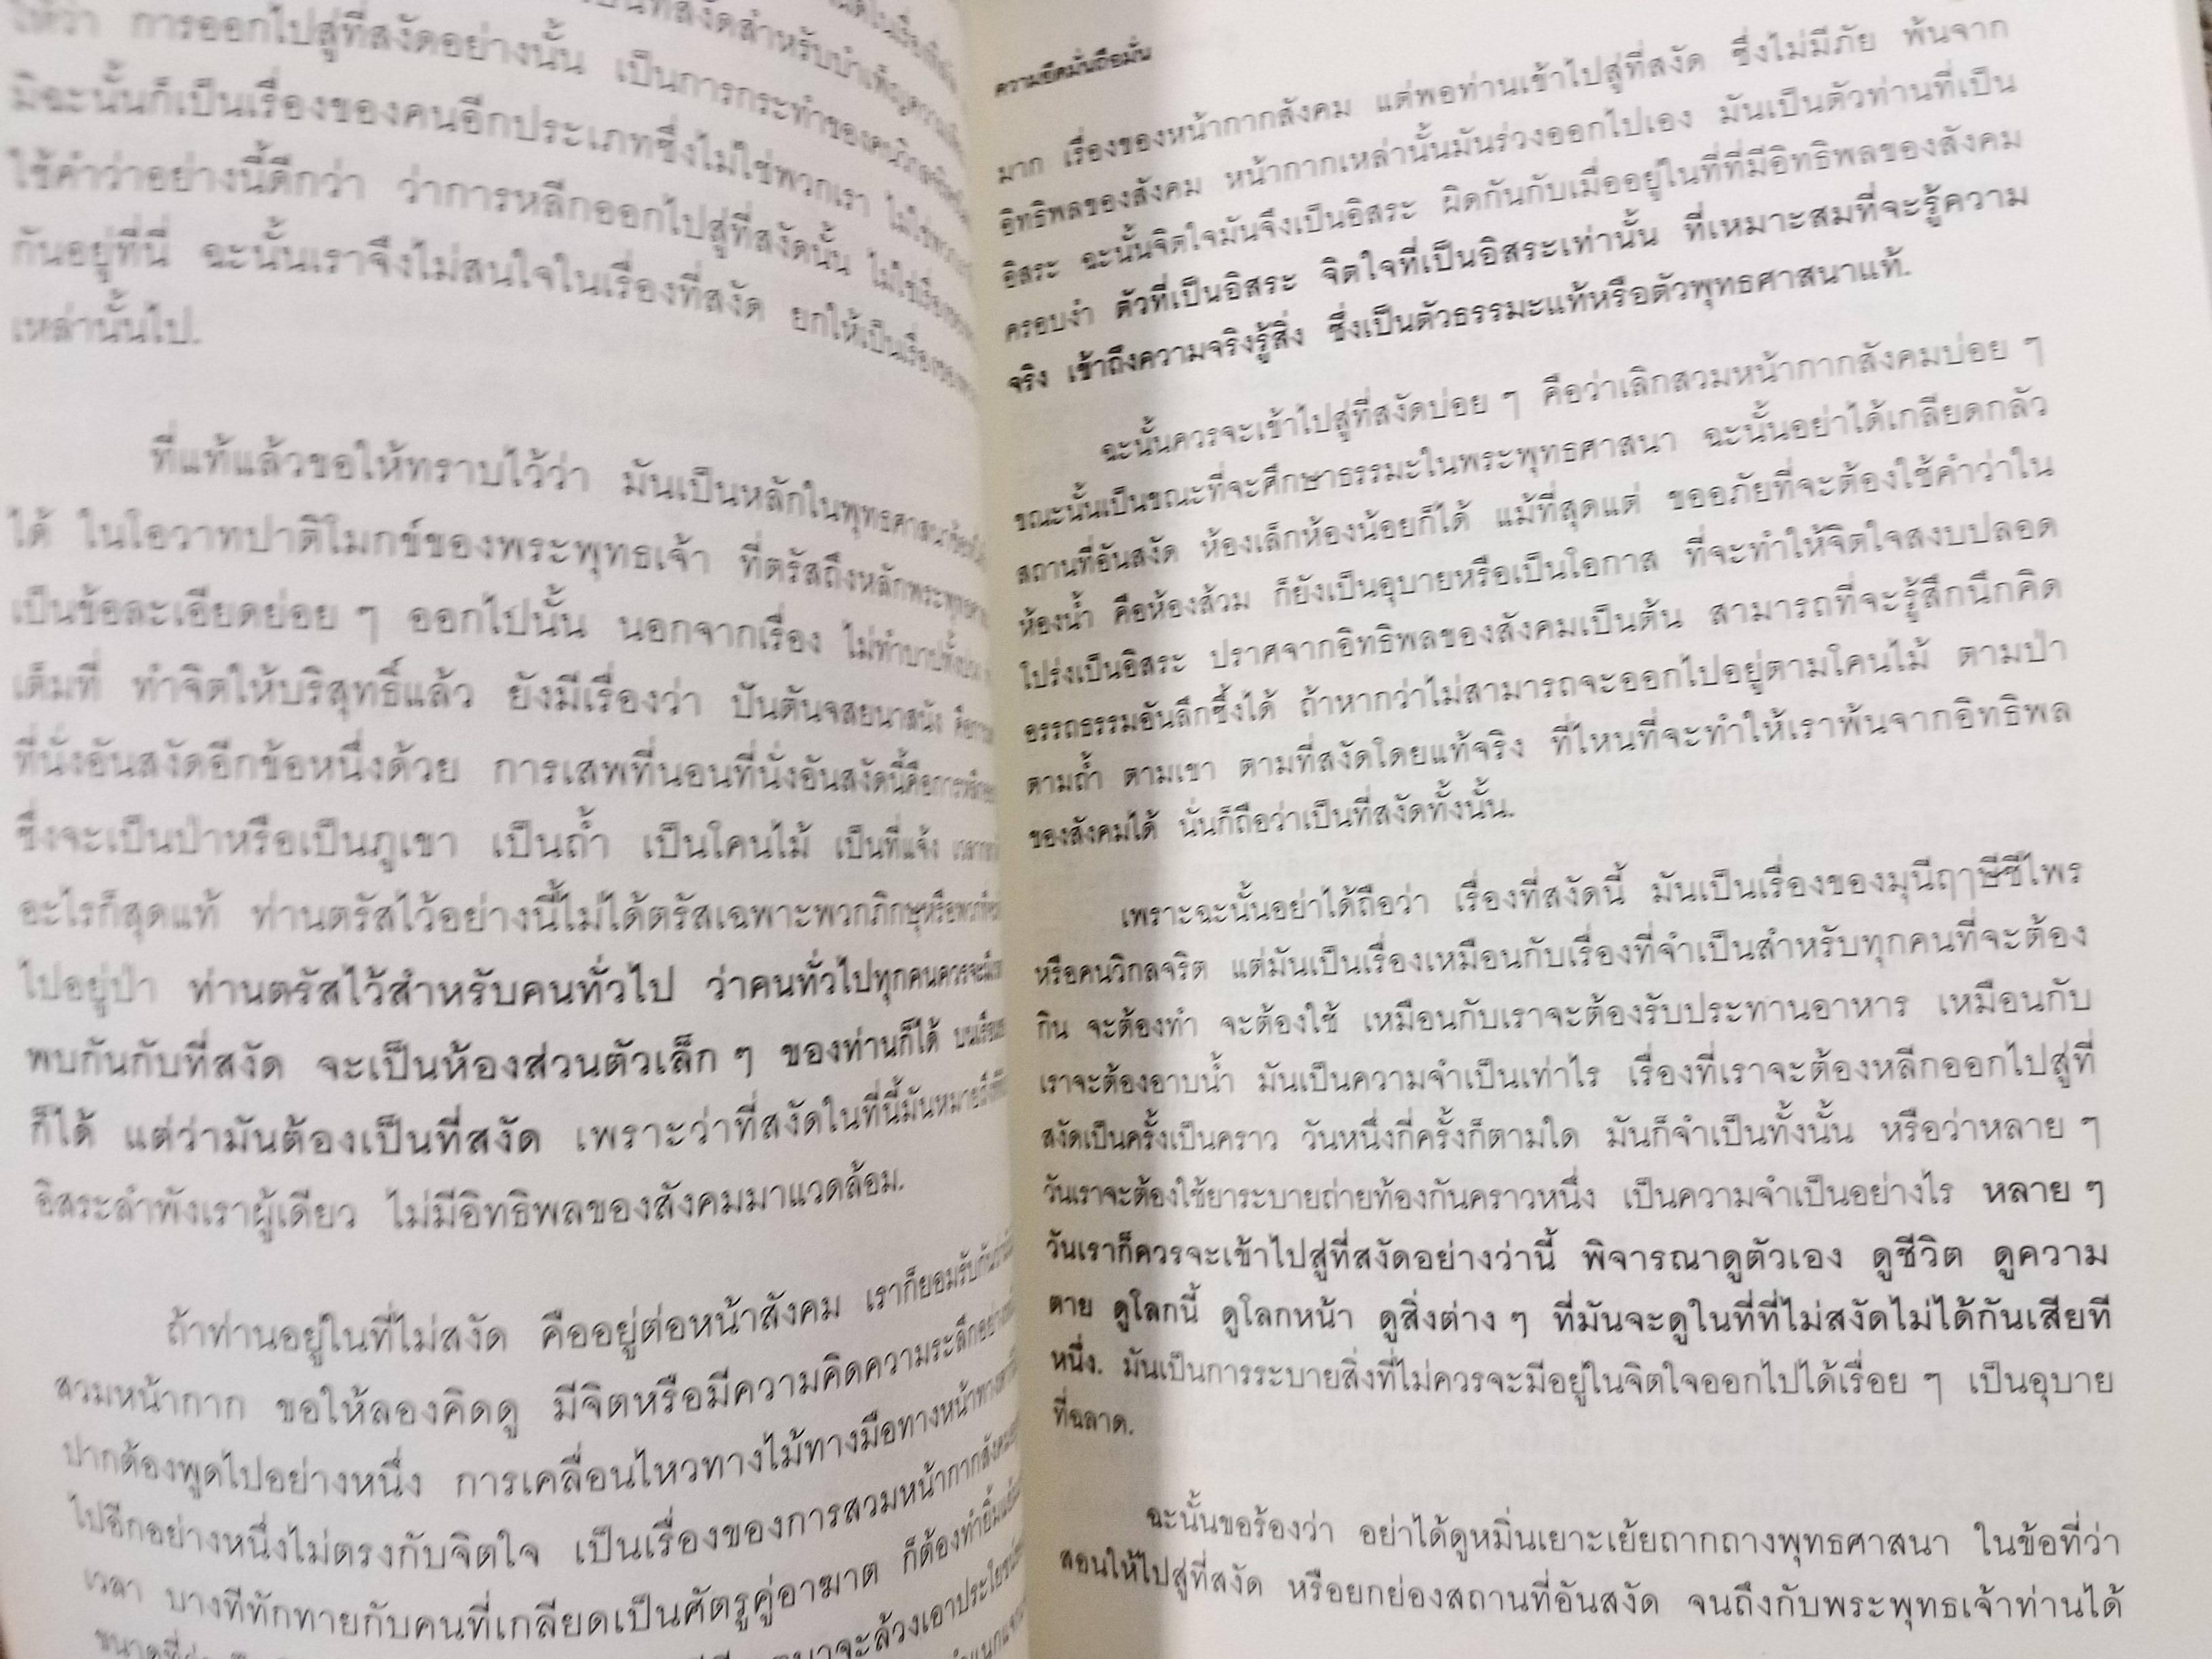 ให้ว่า การออกไปสู่ที่สงัดอย่างนั้น เป็นการกระทำของ
มิฉะนั้นก็เป็นเรื่องของคนอีกประเภทซึ่งไม่ใช่พวกเรา
ใช้คำว่าอย่างนี้ดีกว่า ว่าการหลีกออกไปสู่ที่สงัดนั้น
กันอยู่ที่นี่ ฉะนั้นเราจึงไม่สนใจในเรื่องที่สงัด ยกให้เป็นเรื่องของ
เหล่านั้นไป.
ที่แท้แล้วขอให้ทราบไว้ว่า มันเป็นหลักในพุทธศาสนา
ได้ ในโอวาทปาติโมกข์ของพระพุทธเจ้า ที่ตรัสถึงหลัก
เป็นข้อละเอียดย่อย ๆ ออกไปนั้น นอกจากเรื่อง ไม่ทำบาปทั้งปวง
เต็มที่ ทำจิตให้บริสุทธิ์แล้ว ยังมีเรื่องว่า ปันตันจสยนาสนัง
ที่นั่งอันสงัดอีกข้อหนึ่งด้วย การเสพที่นอนที่นั่งอันสงัดนี้คือการ
ซึ่งจะเป็นป่าหรือเป็นภูเขา เป็นถ้ำ เป็นโคนไม้ เป็นที่แจ้ง
อะไรก็สุดแท้ ท่านตรัสไว้อย่างนี้ไม่ได้ตรัสเฉพาะพวกภิกษุหรือ
ไปอยู่ป่า ท่านตรัสไว้สำหรับคนทั่วไป ว่าคนทั่วไปทุกคนควรจะ
พบกันกับที่สงัด จะเป็นห้องส่วนตัวเล็ก ๆ ของท่านก็ได้
ก็ได้ แต่ว่ามันต้องเป็นที่สงัด เพราะว่าที่สงัดในที่นี้มันหมายถึง
อิสระลำพังเราผู้เดียว ไม่มีอิทธิพลของสังคมมาแวดล้อม.
ถ้าท่านอยู่ในที่ไม่สงัด คืออยู่ต่อหน้าสังคม เราก็ยอมรับกัน
สวมหน้ากาก ขอให้ลองคิดดู มีจิตหรือมีความคิดความระลึกอย่าง
ปากต้องพูดไปอย่างหนึ่ง การเคลื่อนไหวทางไม้ทางมือทางหน้าทาง
ไปอีกอย่างหนึ่งไม่ตรงกับจิตใจ เป็นเรื่องของการสวมหน้ากากสังคม
เวลา บางทีทักทายกับคนที่เกลียดเป็นศัตรูคู่อาฆาต ก็ต้องทำยิ้ม
จะล้วงเอาประโยชน์
ความยึดมั่นถือมั่น
มาก เรื่องของหน้ากากสังคม แต่พอท่านเข้าไปสู่ที่สงัด ซึ่งไม่มีภัย พ้นจาก
อิทธิพลของสังคม หน้ากากเหล่านั้นมันร่วงออกไปเอง มันเป็นตัวท่านที่เป็น
อิสระ ฉะนั้นจิตใจมันจึงเป็นอิสระ ผิดกันกับเมื่ออยู่ในที่ที่มีอิทธิพลของสังคม
ครอบงำ ตัวที่เป็นอิสระ จิตใจที่เป็นอิสระเท่านั้น ที่เหมาะสมที่จะรู้ความ
จริง เข้าถึงความจริงรู้สิ่ง ซึ่งเป็นตัวธรรมะแท้หรือตัวพุทธศาสนาแท้.
ฉะนั้นควรจะเข้าไปสู่ที่สงัดบ่อย ๆ คือว่าเลิกสวมหน้ากากสังคมบ่อย ๆ
ขณะนั้นเป็นขณะที่จะศึกษาธรรมะในพระพุทธศาสนา ฉะนั้นอย่าได้เกลียดกลัว
สถานที่อันสงัด ห้องเล็กห้องน้อยก็ได้ แม้ที่สุดแต่ ขออภัยที่จะต้องใช้คำว่าใน
ห้องน้ำ คือห้องส้วม ก็ยังเป็นอุบายหรือเป็นโอกาส ที่จะทำให้จิตใจสงบปลอด
โปร่งเป็นอิสระ ปราศจากอิทธิพลของสังคมเป็นต้น สามารถที่จะรู้สึกนึกคิด
อรรถธรรมอันลึกซึ้งได้ ถ้าหากว่าไม่สามารถจะออกไปอยู่ตามโคนไม้ ตามป่า
ตามถ้ำ ตามเขา ตามที่สงัดโดยแท้จริง ที่ไหนที่จะทำให้เราพ้นจากอิทธิพล
ของสังคมได้ นั่นก็ถือว่าเป็นที่สงัดทั้งนั้น.
เพราะฉะนั้นอย่าได้ถือว่า เรื่องที่สงัดนี้ มันเป็นเรื่องของมุนีฤๅษีชีไพร
หรือคนวิกลจริต แต่มันเป็นเรื่องเหมือนกับเรื่องที่จำเป็นสำหรับทุกคนที่จะต้อง
กิน จะต้องทำ จะต้องใช้ เหมือนกับเราจะต้องรับประทานอาหาร เหมือนกับ
เราจะต้องอาบน้ำ มันเป็นความจำเป็นเท่าไร เรื่องที่เราจะต้องหลีกออกไปสู่ที่
สงัดเป็นครั้งเป็นคราว วันหนึ่งกี่ครั้งก็ตามใด มันก็จำเป็นทั้งนั้น หรือว่าหลาย ๆ
วันเราจะต้องใช้ยาระบายถ่ายท้องกันคราวหนึ่ง เป็นความจำเป็นอย่างไร หลาย ๆ
วันเราก็ควรจะเข้าไปสู่ที่สงัดอย่างว่านี้ พิจารณาดูตัวเอง ดูชีวิต ดูความ
ตาย ดูโลกนี้ ดูโลกหน้า ดูสิ่งต่าง ๆ ที่มันจะดูในที่ที่ไม่สงัดไม่ได้กันเสียที
หนึ่ง. มันเป็นการระบายสิ่งที่ไม่ควรจะมีอยู่ในจิตใจออกไปได้เรื่อย ๆ เป็นอุบาย
ที่ฉลาด.
ฉะนั้นขอร้องว่า อย่าได้ดูหมิ่นเยาะเย้ยถากถางพุทธศาสนา ในข้อที่ว่า
สอนให้ไปสู่ที่สงัด หรือยกย่องสถานที่อันสงัด จนถึงกับพระพุทธเจ้าท่านได้